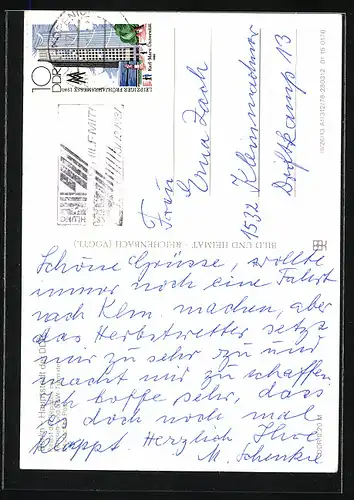 10
DDR
LEIPZIGER FRÜHJAHRSMESSE 1980
Karl-Marx-Stadt
Frau
Erna Zoch
1532 Kleinmachnow
Driftkamp 13
BILD UND HEIMAT · REICHENBACH (VOGTL)
Schöne Grüsse, wollte
immer noch eine Fahrt
nach Klm. machen, aber
das Herbstwetter setzt
mir zu sehr zu und
macht mir zu schaffen.
Ich hoffe sehr, dass
es doch noch mal
klappt. Herzlich Ihre
M. Schenke